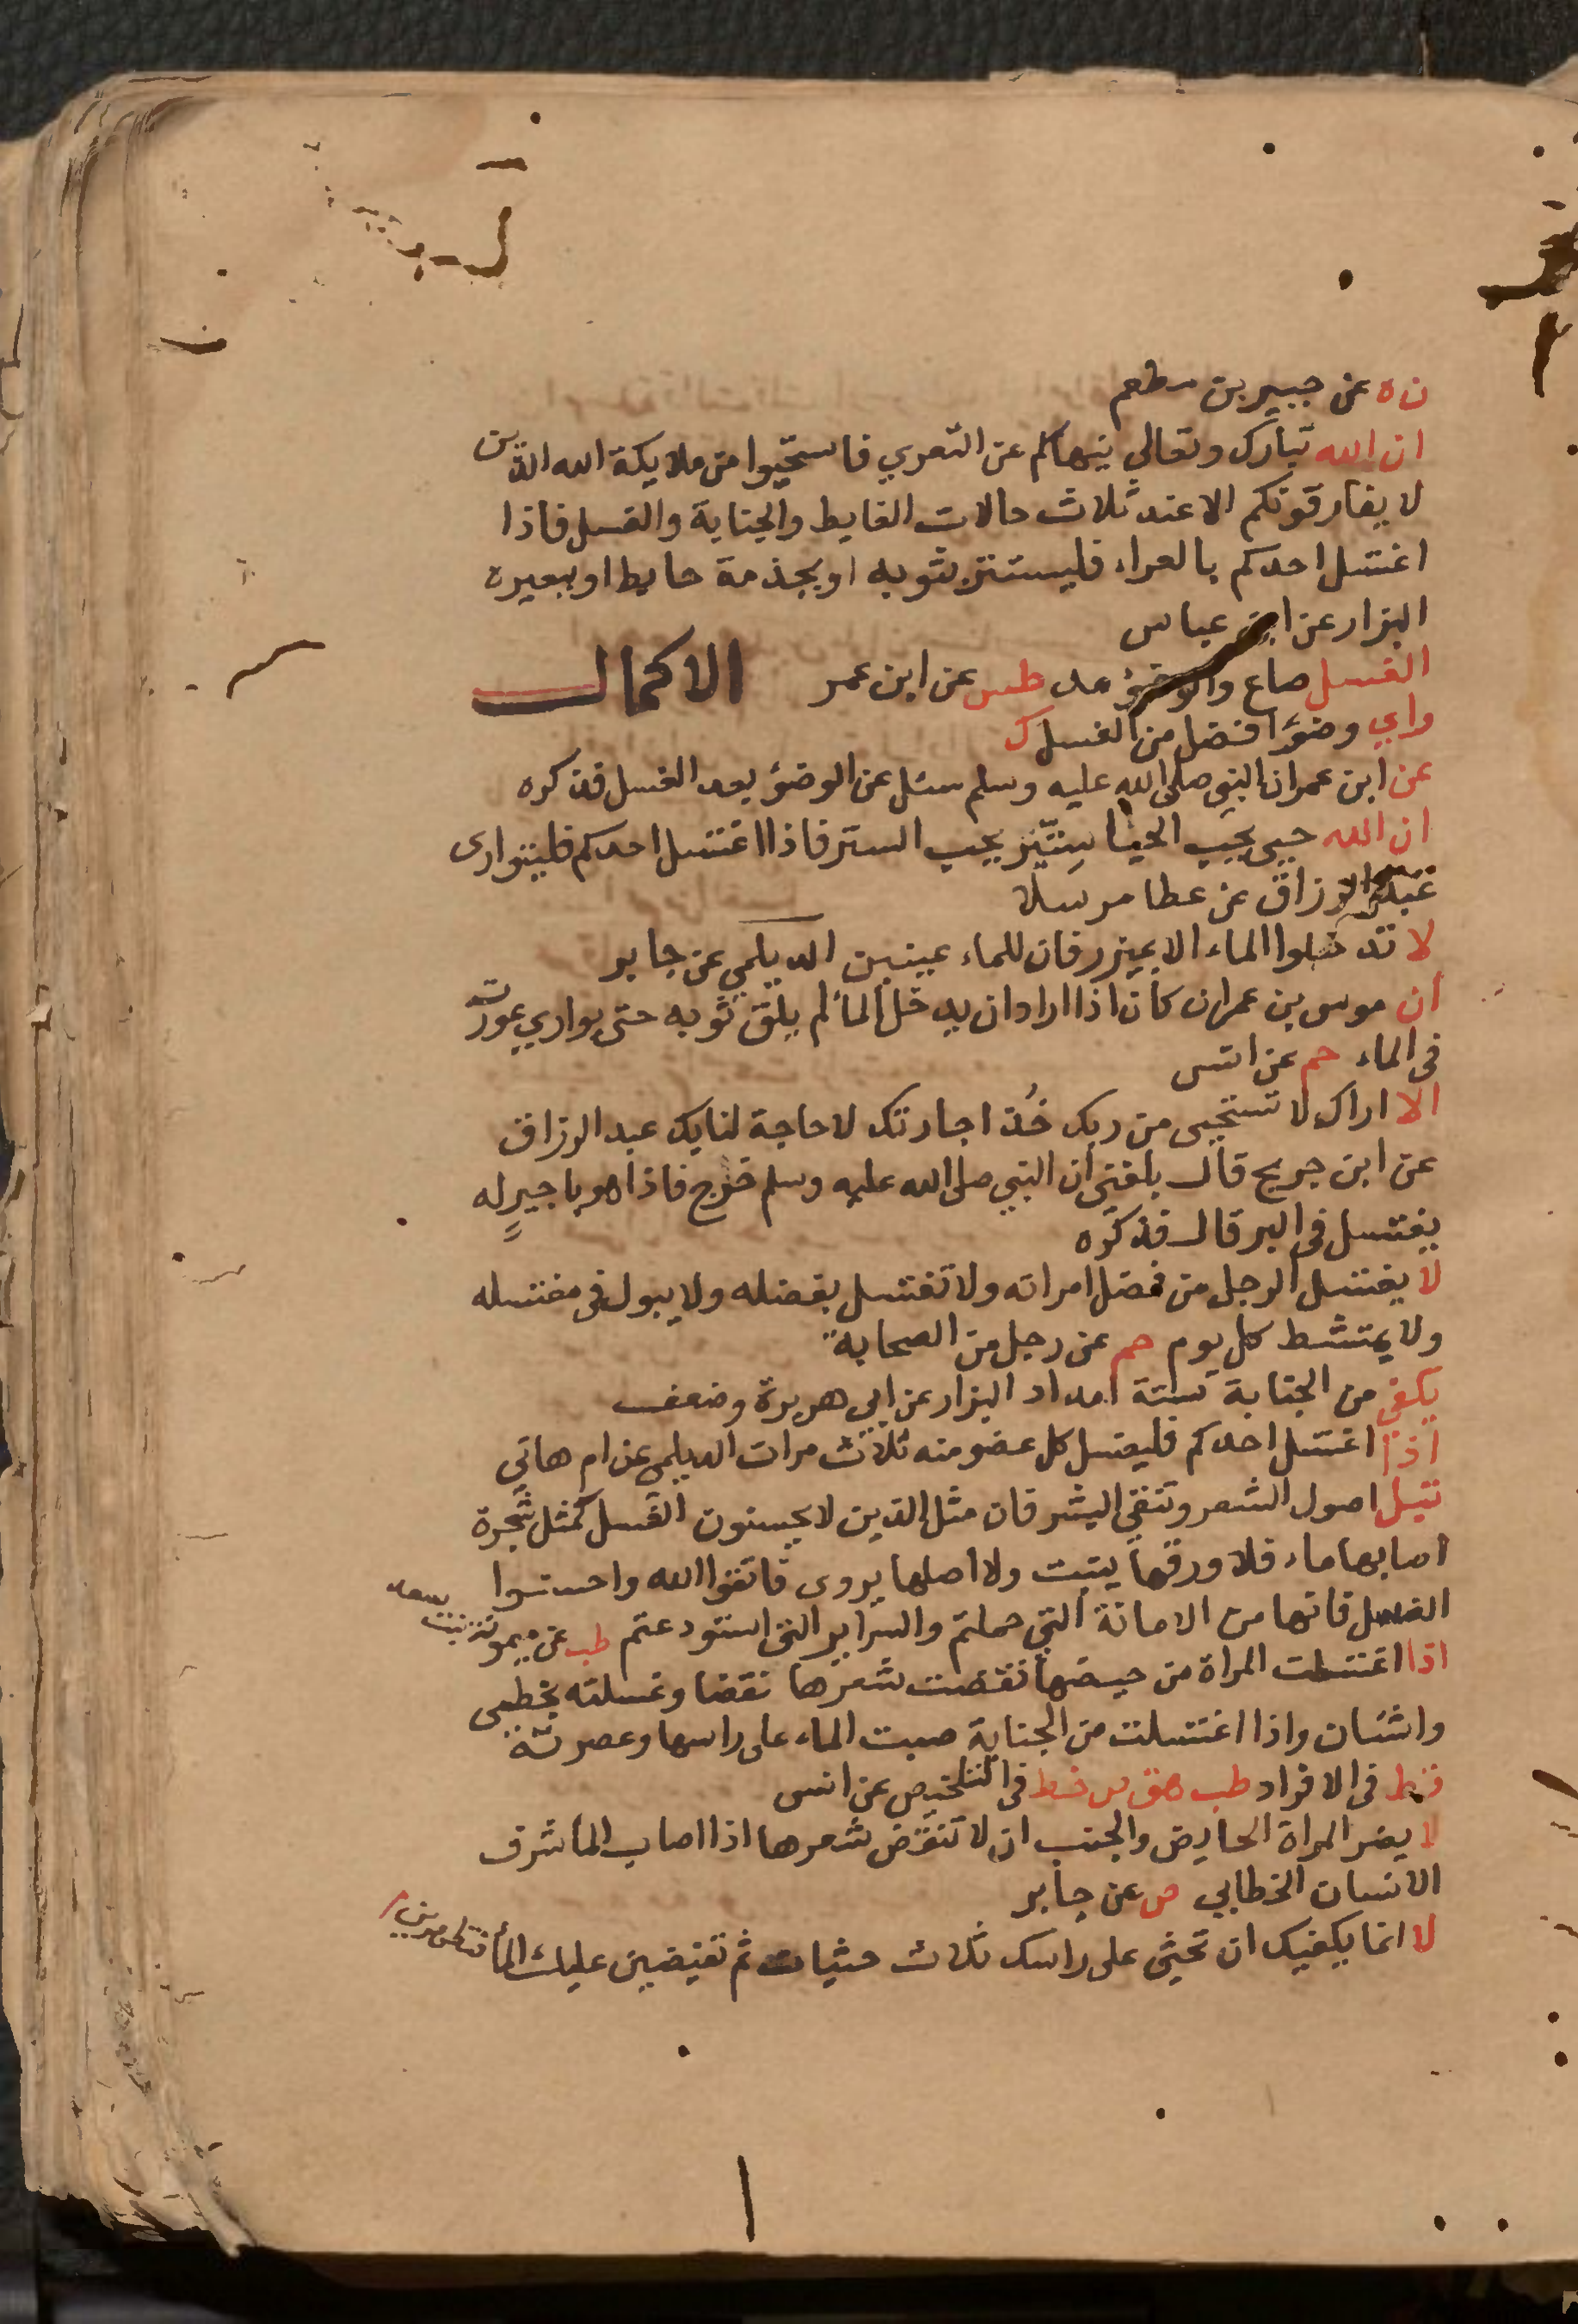 ن ه عن جبير بن مطعم
ان الله تبارك وتعالي ينهاكم عن التعري فاستحيوا من ملايكة الله الذين
لا يفارقونكم الا عند ثلاث حالات الغايط والجنابة والغسل فاذا
اغتسل احدكم بالعراء فليستتر بثوبه او بجذمة حايط او ببعيره
البزار عن ابن عباس
الغسل صاع والوضؤ مد طس عن ابن عمر الاكمال
واي وضؤ افضل من الغسل ك
عن ابن عمر ان النبي صلى الله عليه وسلم سئل عن الوضؤ بعد الغسل فذكره
ان الله حيي يحب الحيا ستير يحب الستر فاذا اغتسل احدكم فليتوارى
عبد الرزاق عن عطا مرسلا
لا تدخلوا الماء الا بميزر فان للماء عينين الديلمي عن جابر
ان موسى بن عمران كان اذا اراد ان يدخل الماء لم يلق ثوبه حتى يواري عورته
في الماء حم عن انس
الا اراك لا تستحيي من ربك خذ اجارتك لا حاجة لنا بك عبد الرزاق
عن ابن جريج قال بلغني ان النبي صلى الله عليه وسلم خرج فاذا هو باجير له
يغتسل في البر قال فذكره
لا يغتسل الرجل من فضل امراته ولا تغتسل بفضله ولا يبول في مغتسله
ولا يمتشط كل يوم حم عن رجل من الصحابة
يكفي من الجنابة ستة امداد البزار عن ابي هريرة وضعف
اذا اغتسل احدكم فليغسل كل عضو منه ثلاث مرات الديلمي عن ام هاني
تبتل اصول الشعر وتنقي البشر فان مثل الذين لا يحسنون الغسل كمثل شجرة
اصابها ماء فلا ورقها ينبت ولا اصلها يروى فاتقوا الله واحسنوا
الغسل فانها من الامانة التي حملتم والسراير التي استودعتم طب عن ميمونة بنت سعد
اذا اغتسلت المراة من حيضها نقضت شعرها نقضا وغسلته بخطمي
واشنان واذا اغتسلت من الجنابة صبت الماء على راسها وعصرته
قط في الافراد طب هق ص خط في التلخيص عن انس
لا يضر المراة الحايض والجنب ان لا تنقض شعرها اذا اصاب الماء شرف
الانسان الخطابي ص عن جابر
لا انما يكفيك ان تحثي على راسك ثلاث حثيات ثم تفيضين عليك الماء فتطهرين